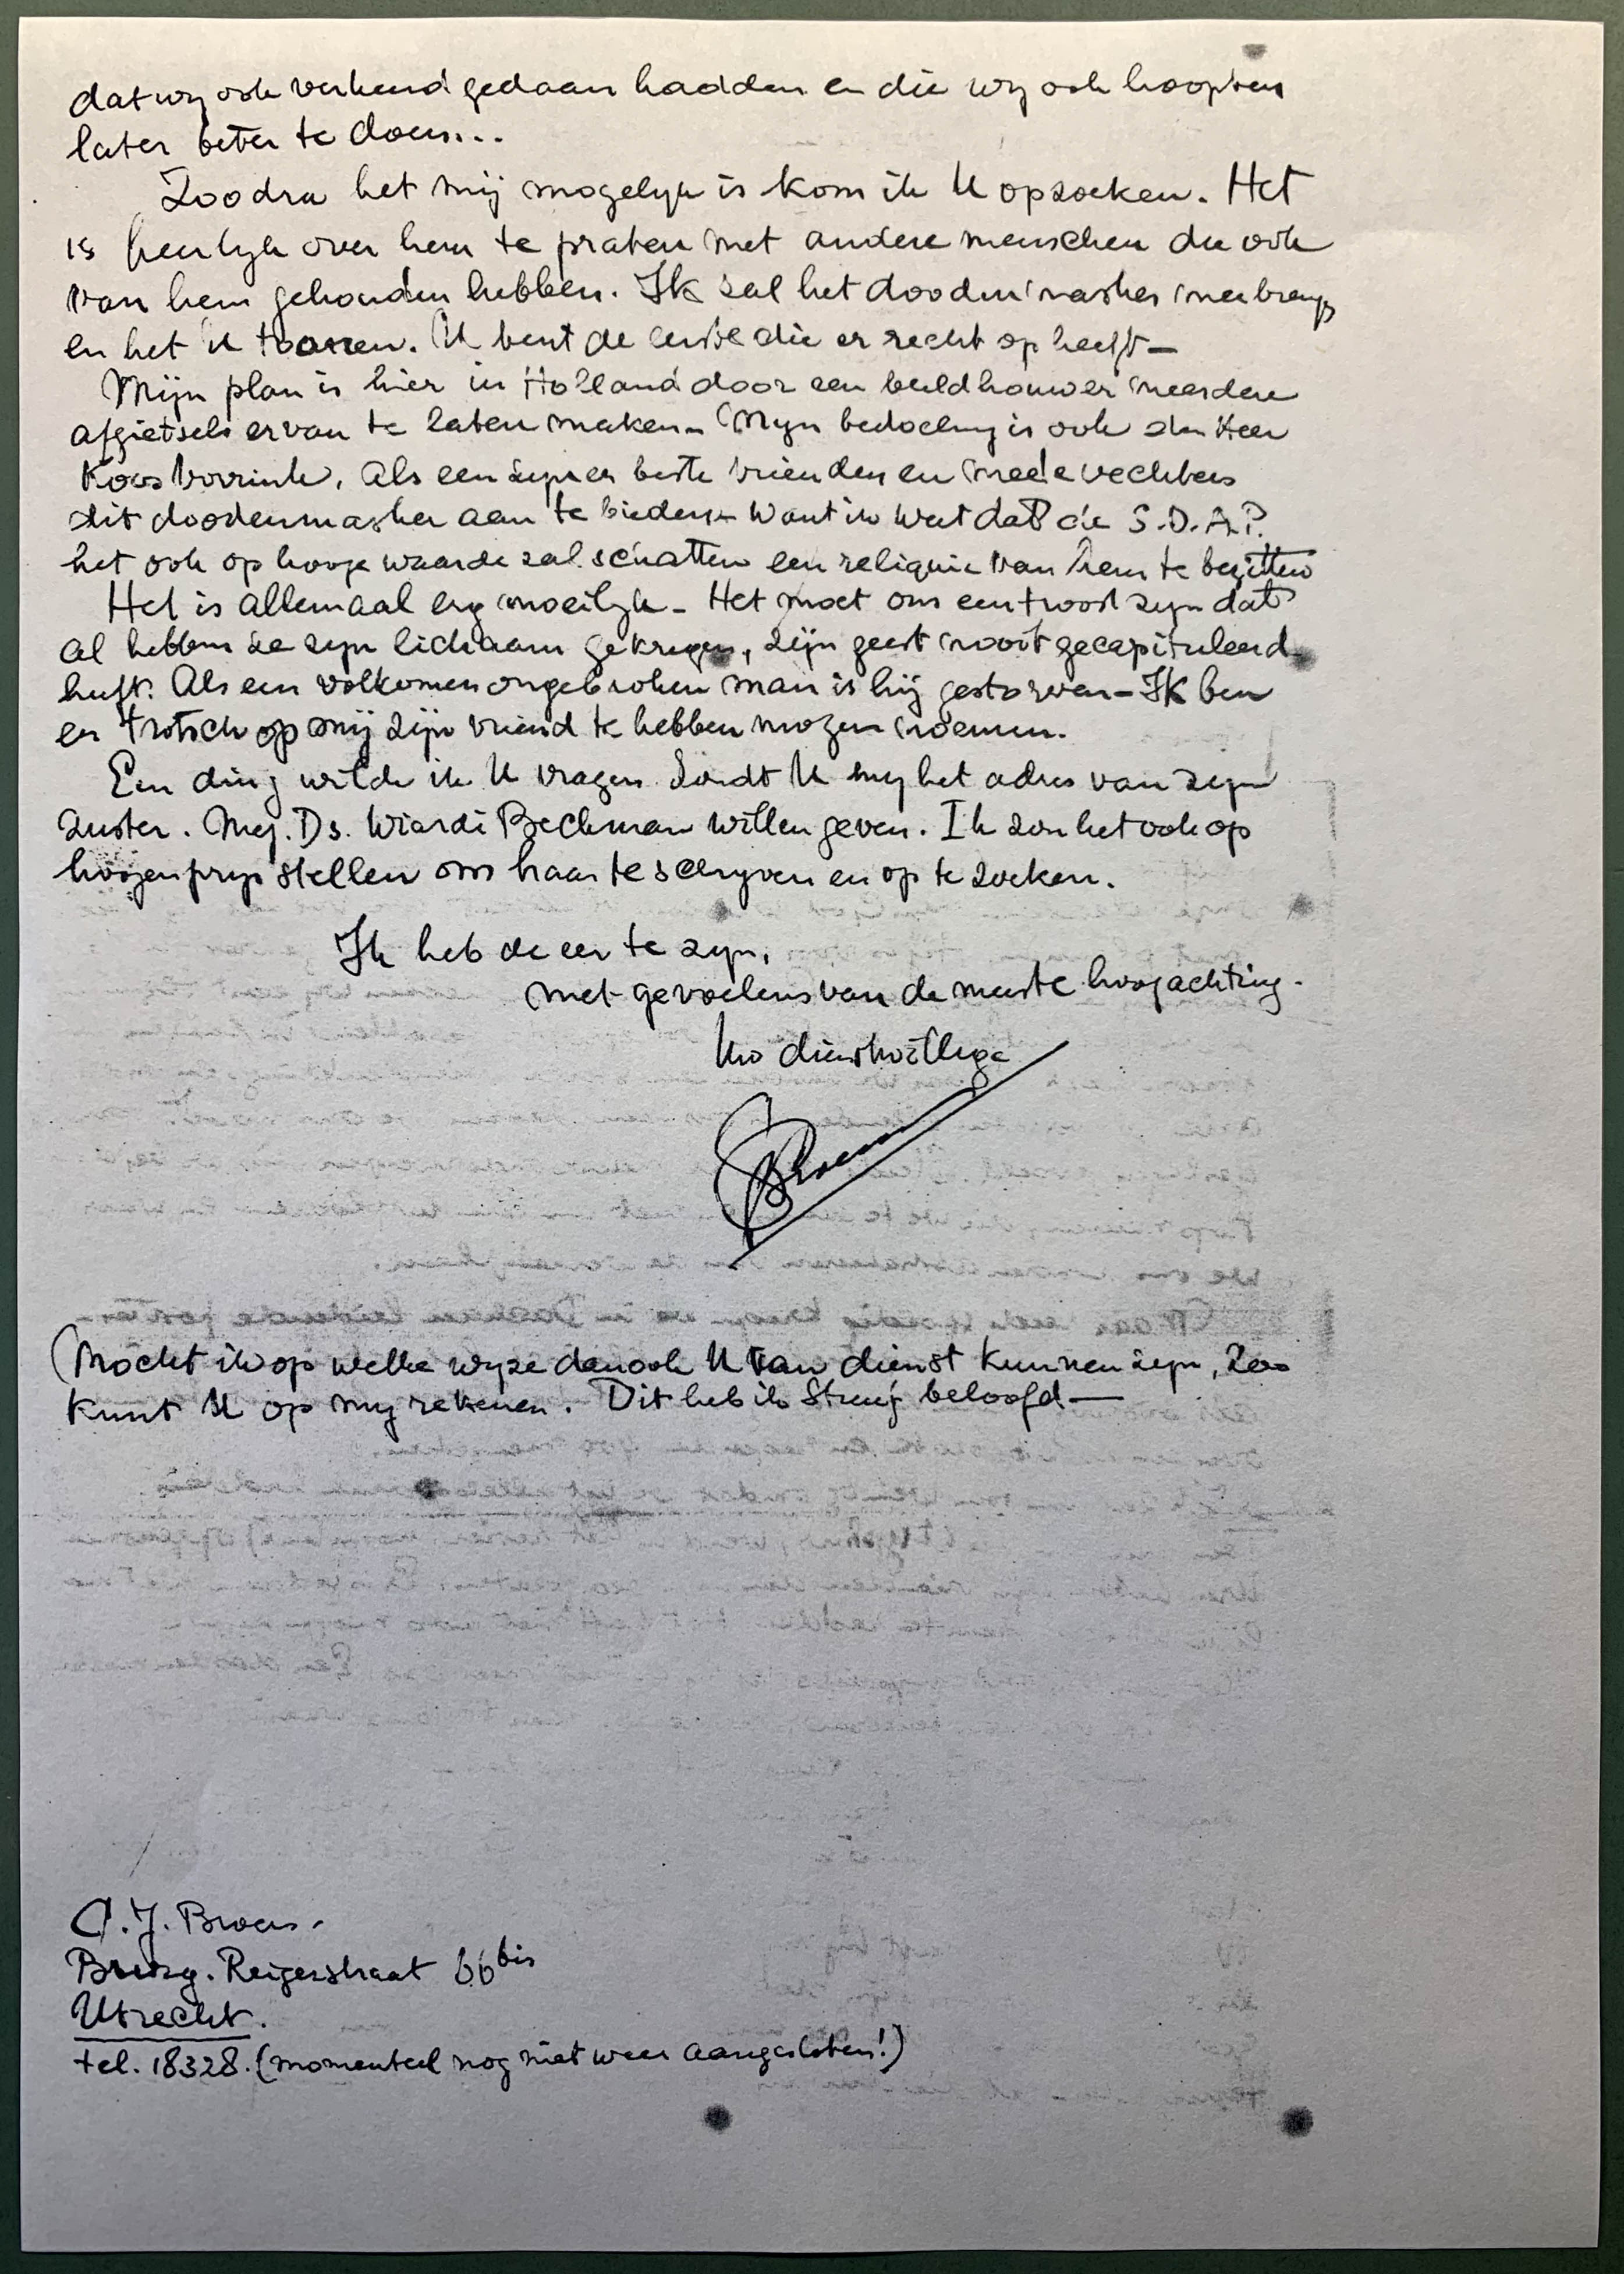 dat wy ook verkeerd gedaan hadden en die wy ook hoopten
later beter te doen...
Zoodra het mij mogelyk is kom ik U opzoeken. Het
is heerlyk over hem te praten met andere menschen die ook
van hem gehouden hebben. Ik zal het doodenmasker meebrengen
en het U toonen. U bent de eerste die er recht op heeft —
Mijn plan is hier in Holland door een beeldhouwer meerdere
afgietsels ervan te laten maken. Myn bedoeling is ook den Heer
Koos Vorrink, als een zyner beste vrienden en medevechters
dit doodenmasker aan te bieden — Want ik weet dat de S.D.A.P.
het ook op hooge waarde zal schatten een reliquie van hem te bezitten
Het is allemaal erg moeilyk — Het moet ons een troost zyn dat
al hebben ze zyn lichaam gekregen, zijn geest nooit gecapituleerd
heeft. Als een volkomen ongebroken man is hij gestorven — Ik ben
er trotsch op mij zijn vriend te hebben mogen noemen.
Een ding wilde ik U vragen. Zoudt U my het adres van zyn
zuster. Mej. Ds. Wiardi Beckman willen geven. Ik zou het ook op
hoogen prys stellen om haar te schryven en op te zoeken.
Ik heb de eer te zyn,
met gevoelens van de meeste hoogachting.
Uw dienstwillige
Broers
(Mocht ik op welke wyze dan ook U van dienst kunnen zyn, zoo
kunt U op my rekenen. Dit heb ik Stuuf beloofd —
C.J. Broers.
Burg. Reigerstraat 66 bis
Utrecht.
tel. 18328. (momenteel nog niet weer aangesloten!)